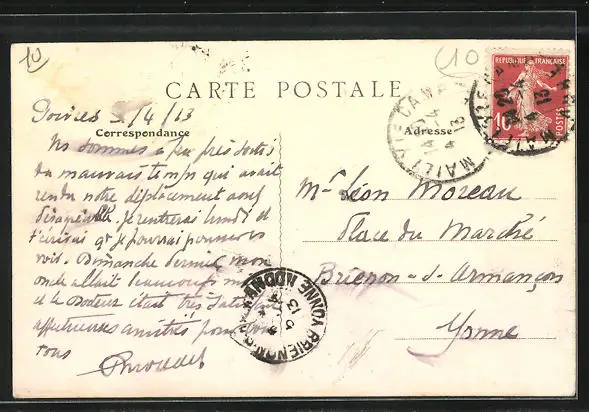 10
10
CARTE POSTALE
REPUBLIQUE FRANÇAISE
10
POSTES
MAILLY LE CAMP
Correspondance
Adresse
5/4/13
Ns sommes à peu près sortis
du mauvais temps qui avait
rendu notre déplacement
désagréable. Je rentrerai lundi et
t'écrirai qd je pourrai
voir. Dimanche dernier mon
oncle allait beaucoup
et le docteur était très
affectueuses amitiés pour
tous
Mr Léon Moreau
Place du Marché
Brienon-s-Armançon
Yonne
BRIENON
YONNE
13